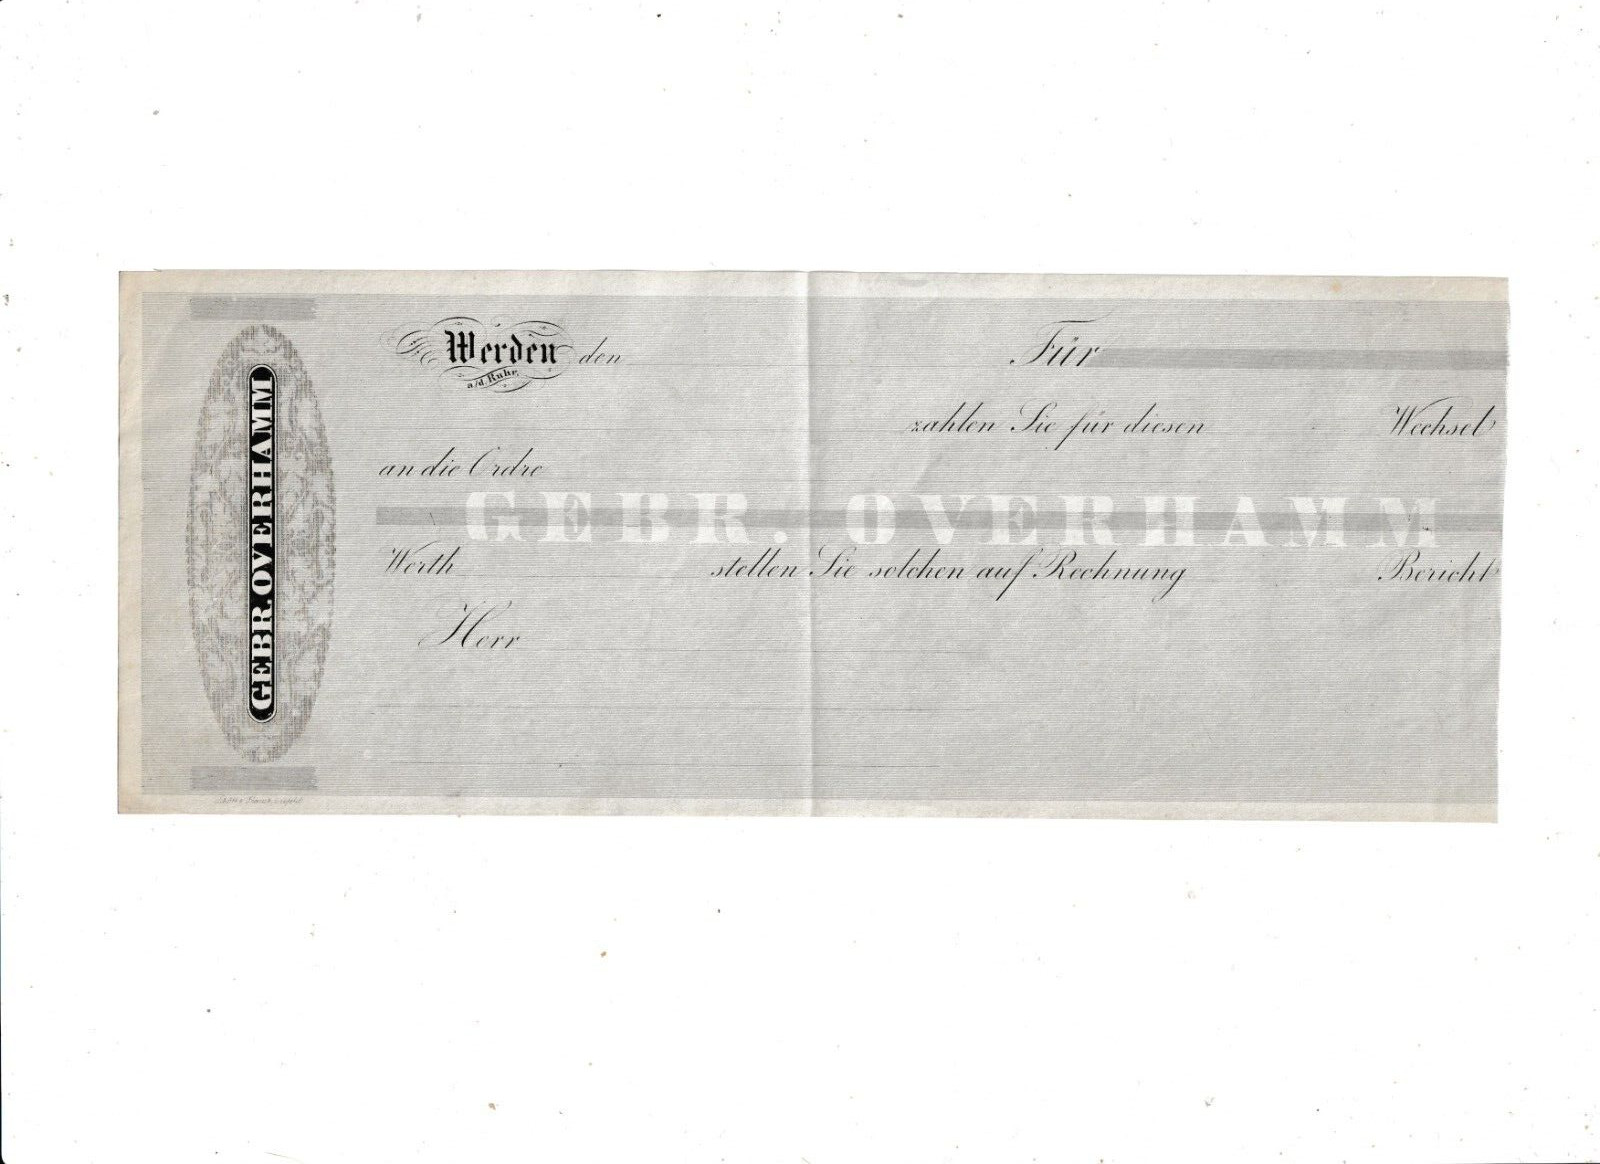 GEBR. OVERHAMM
Werden den Für
a/d. Ruhr.
zahlen Sie für diesen Wechsel
an die Ordre
GEBR. OVERHAMM
Werth stellen Sie solchen auf Rechnung Bericht
Herr